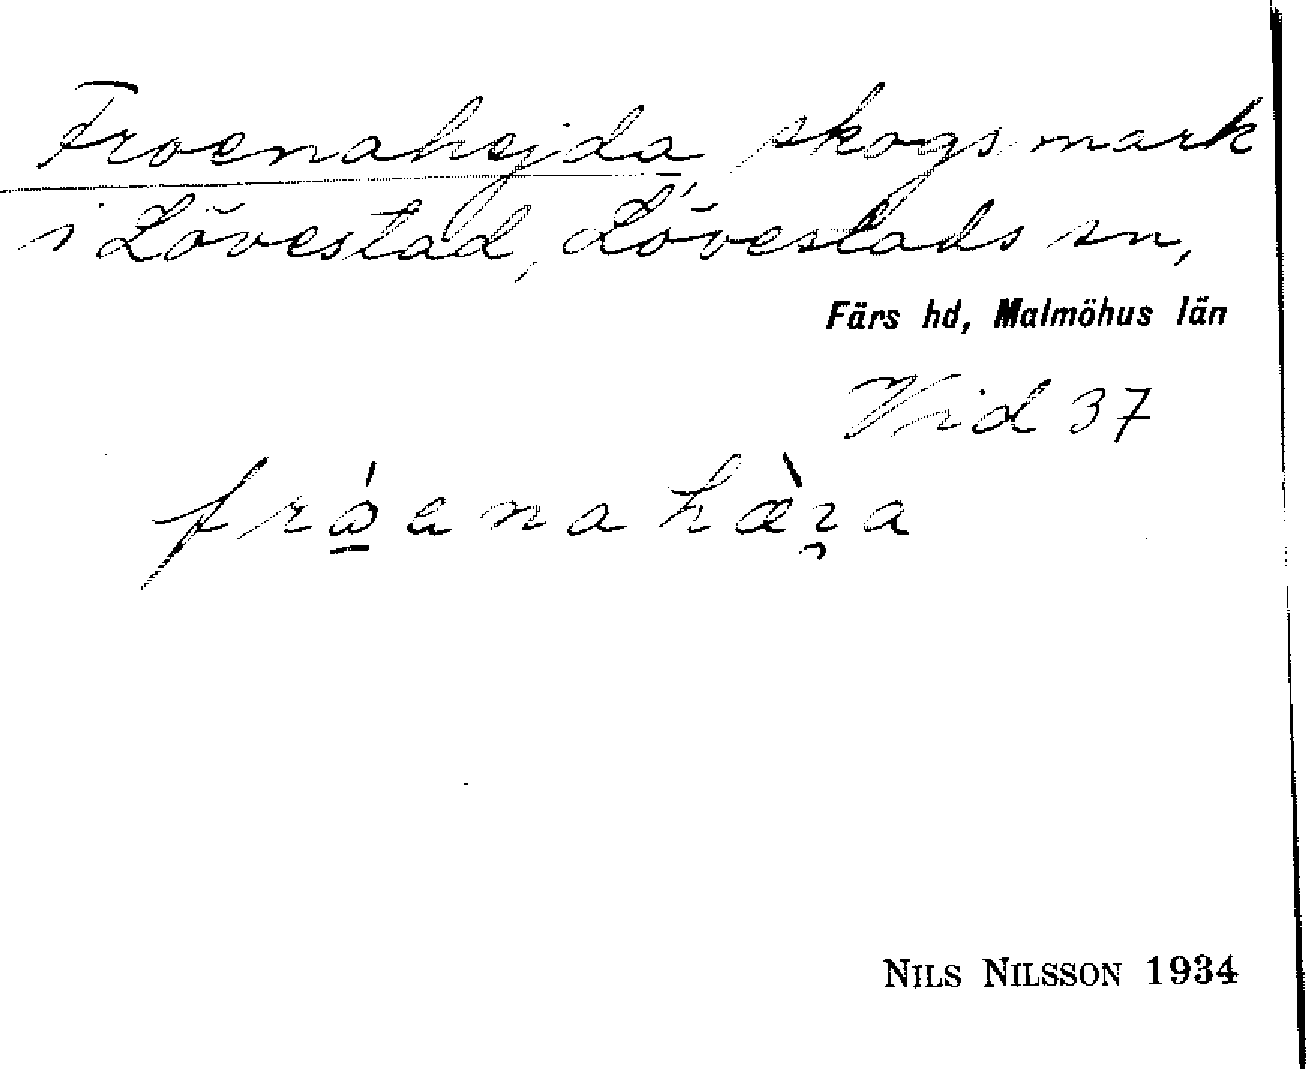 Froenahejda skogsmark
i Lövestad, Lövestads sn,
Färs hd, Malmöhus län
Vid 37
NILS NILSSON 1934